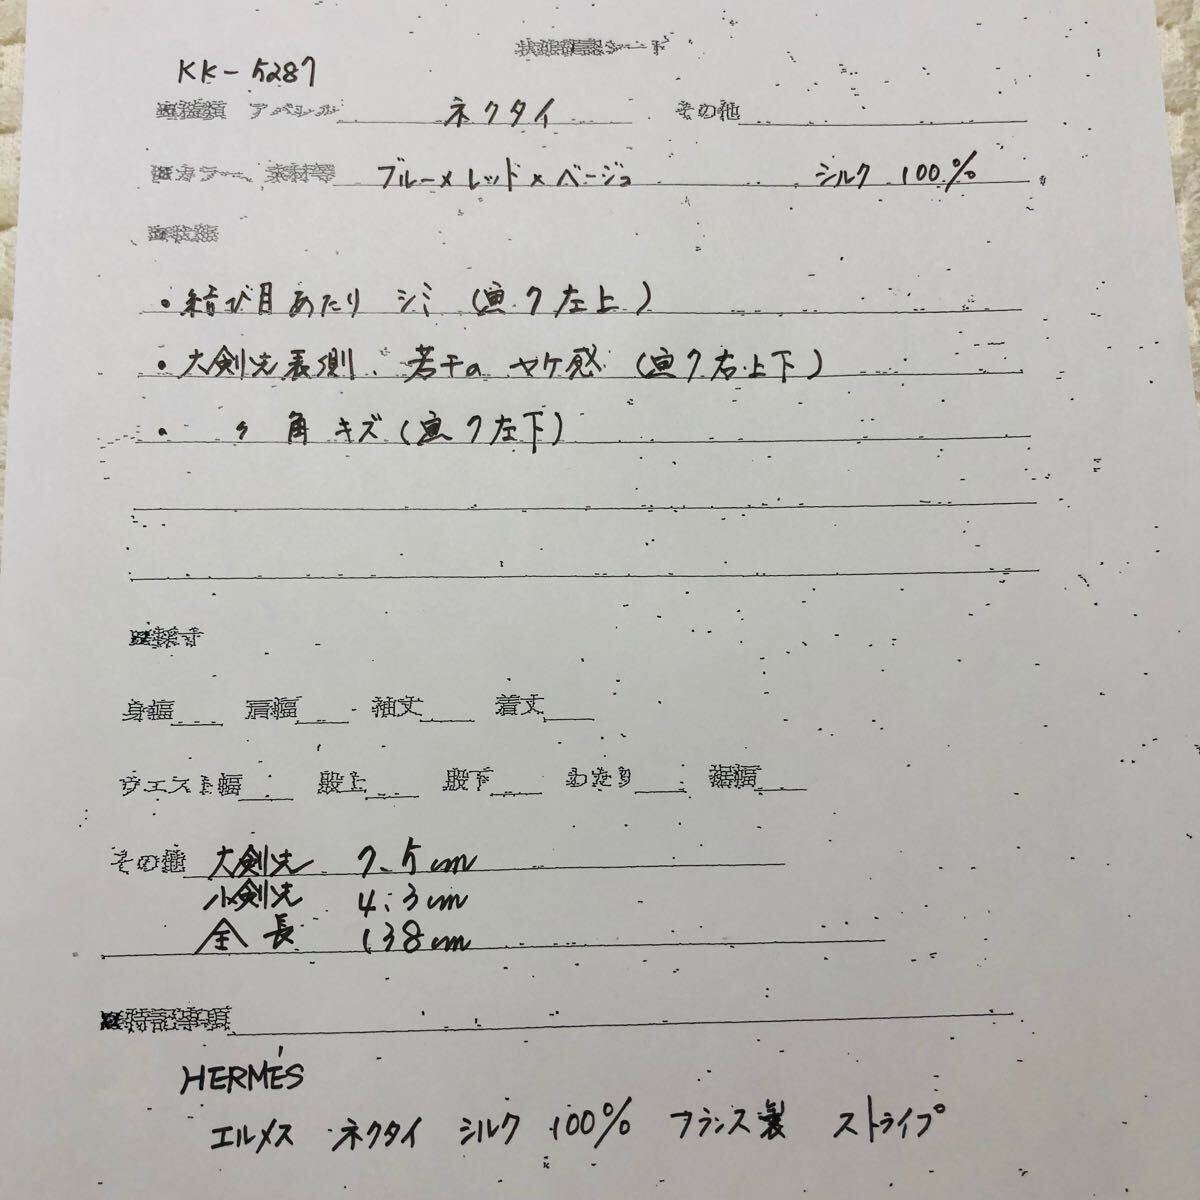 状態確認シート
KK-5287
■種類 アパレル ネクタイ その他
■カラー、素材等 ブルー×レッド×ベージュ シルク 100%
■状態
・結び目あたり シミ (画7左上)
・大剣先表側、若干の ヤケ感 (画7右上下)
・ 〃 角 キズ (画7左下)
■採寸
身幅 肩幅 袖丈 着丈
ウエスト幅 股上 股下 わたり 裾幅
その他 大剣先 7.5cm
小剣先 4.3cm
全長 138cm
■特記事項
HERMÉS
エルメス ネクタイ シルク 100% フランス製 ストライプ